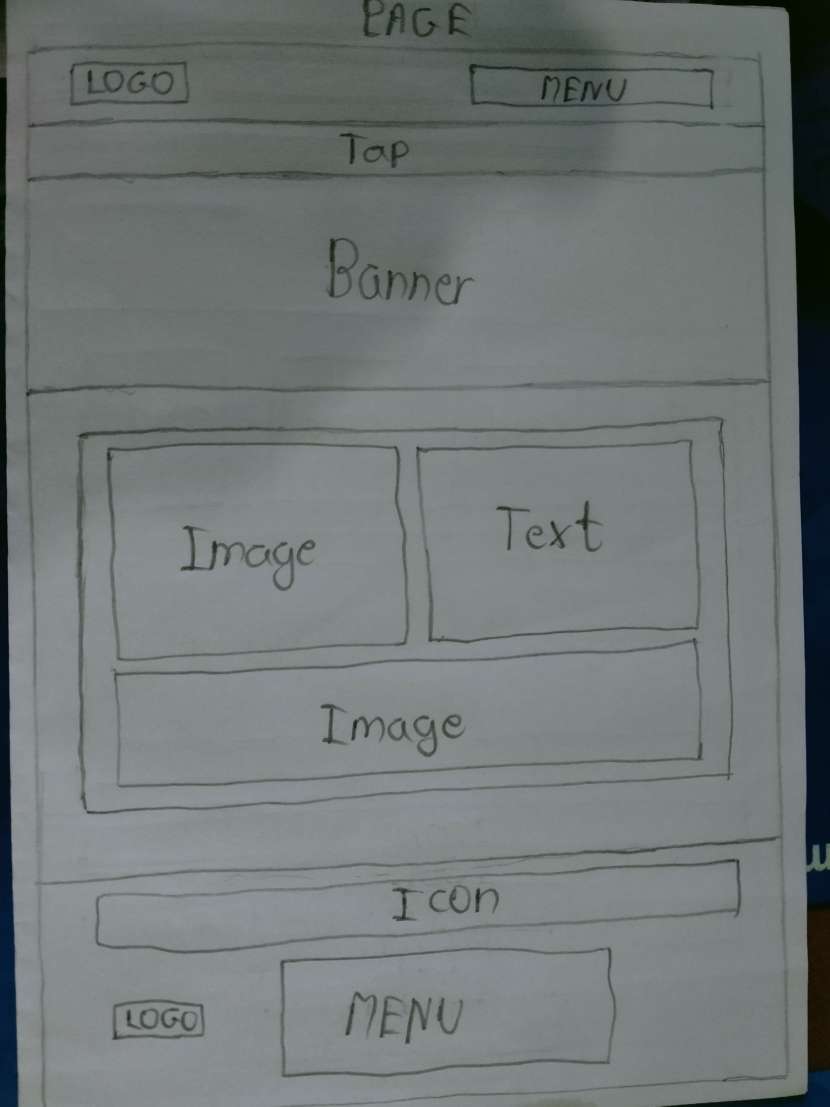 PAGE
LOGO MENU
Tap
Banner
Image Text
Image
Icon
LOGO MENU